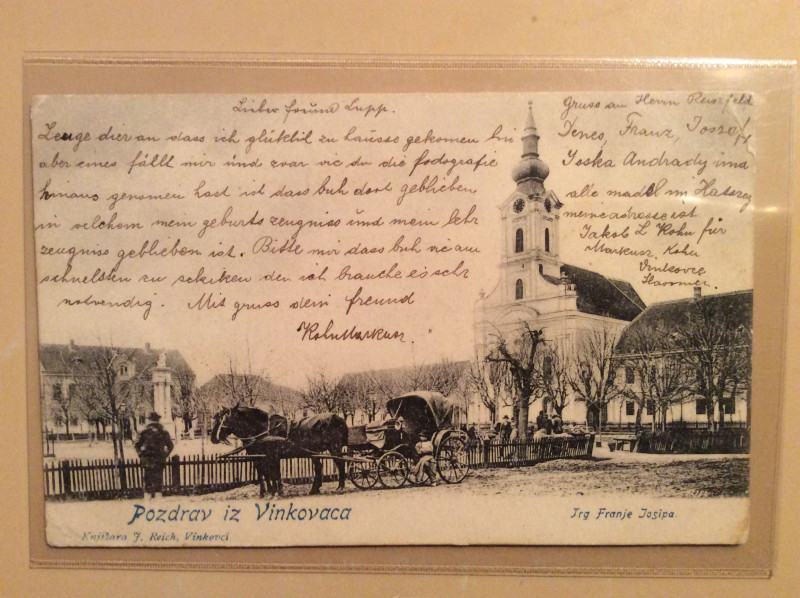 Lieber freund Lupp.
Zeuge dier an dass ich glükbil zu hausse gekomen bin
aber eines fällt mir und zvar vie du die fodografie
hinaus genomen hast ist dass buh dort geblieben
in velchem mein geburts zeugniss und mein lehr
zeugniss geblieben ist. Bitte mir dass buh vie am
schnelsten zu schiken den ich brauche es sehr
notvendig. Mit gruss dein freund
Kohn Markusz.
Gruss an Herrn Reiszfeld
Denes, Franz, Josza
Joska Andrady und
alle madel in Hatszeg
meine adresse ist
Jakob L Kohn für
Markusz Kohn
Vinkovce
Slavonien
Pozdrav iz Vinkovaca
Trg Franje Josipa.
Knjižara J. Reich, Vinkovci